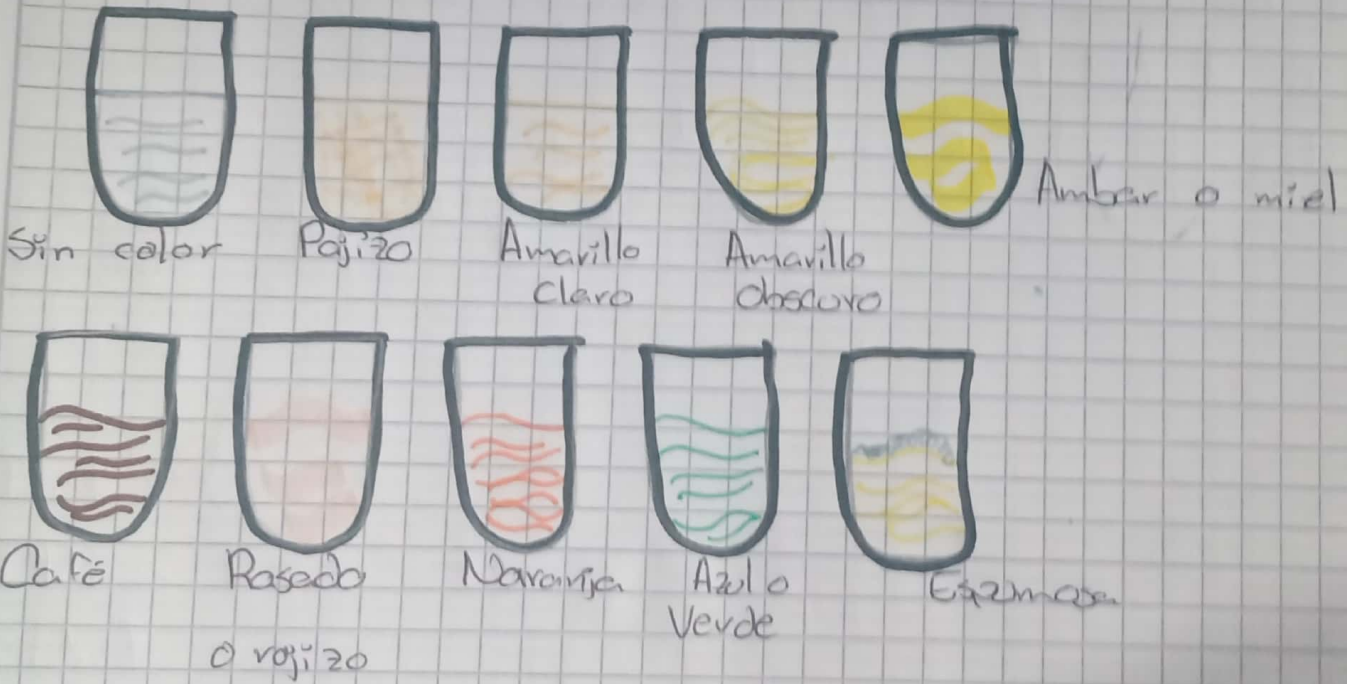 Sin color
Pajizo
Amarillo
Claro
Amarillo
Obscuro
Ambar o miel
Café
Rosado
o rojizo
Naranja
Azul o
Verde